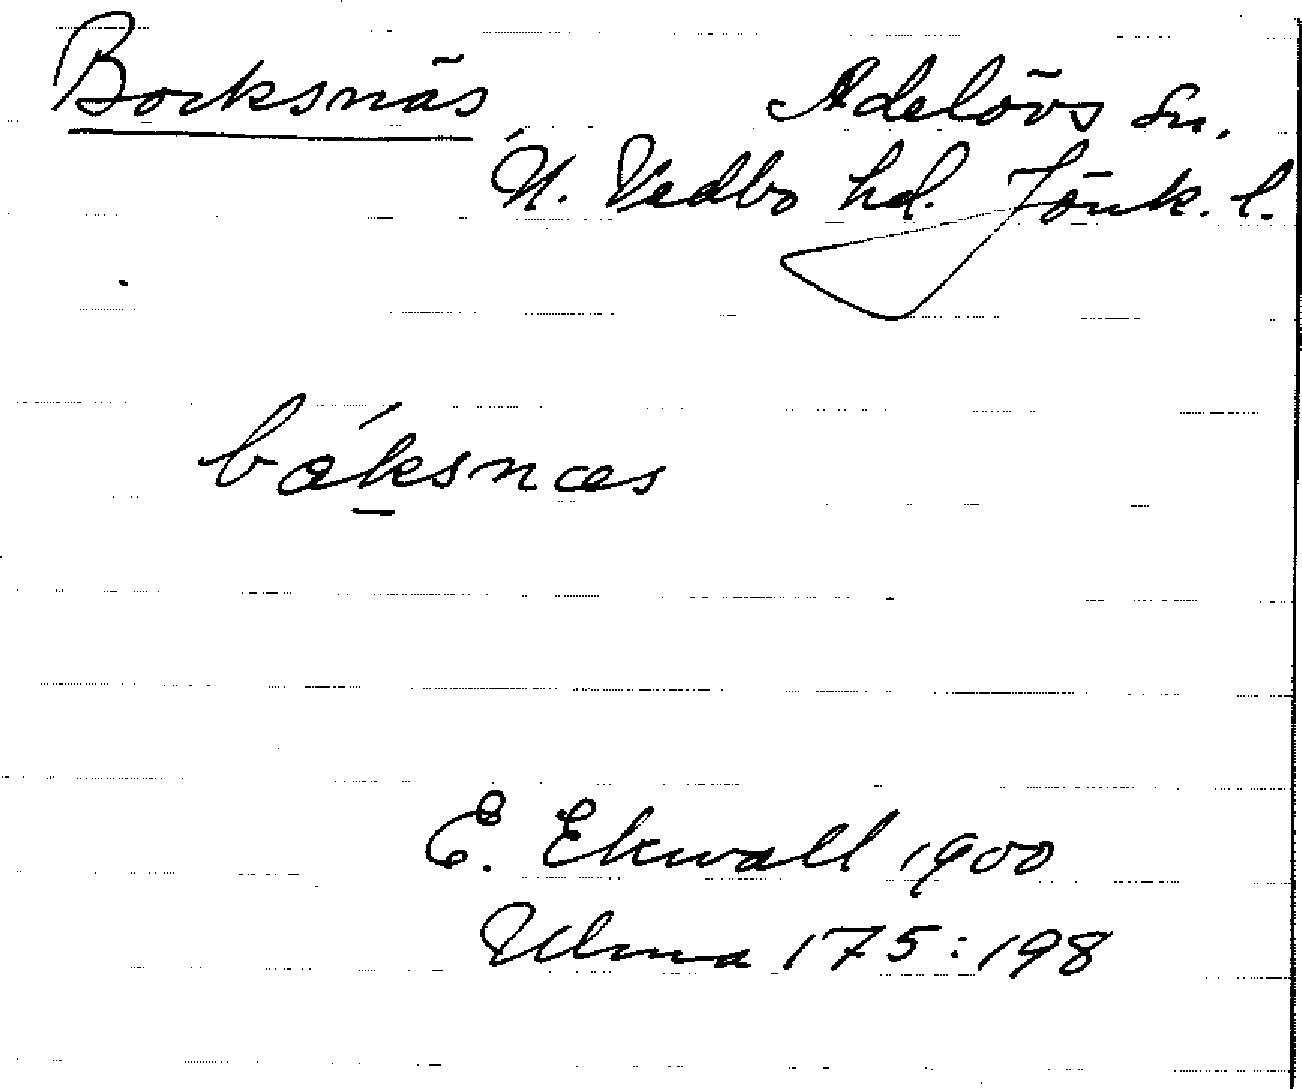 Bocksnäs Adelövs sn.
N. Vedbo hd. Jönk. l.
bo̯ksnæs
E. Ekwall 1900
Ulma 175:198